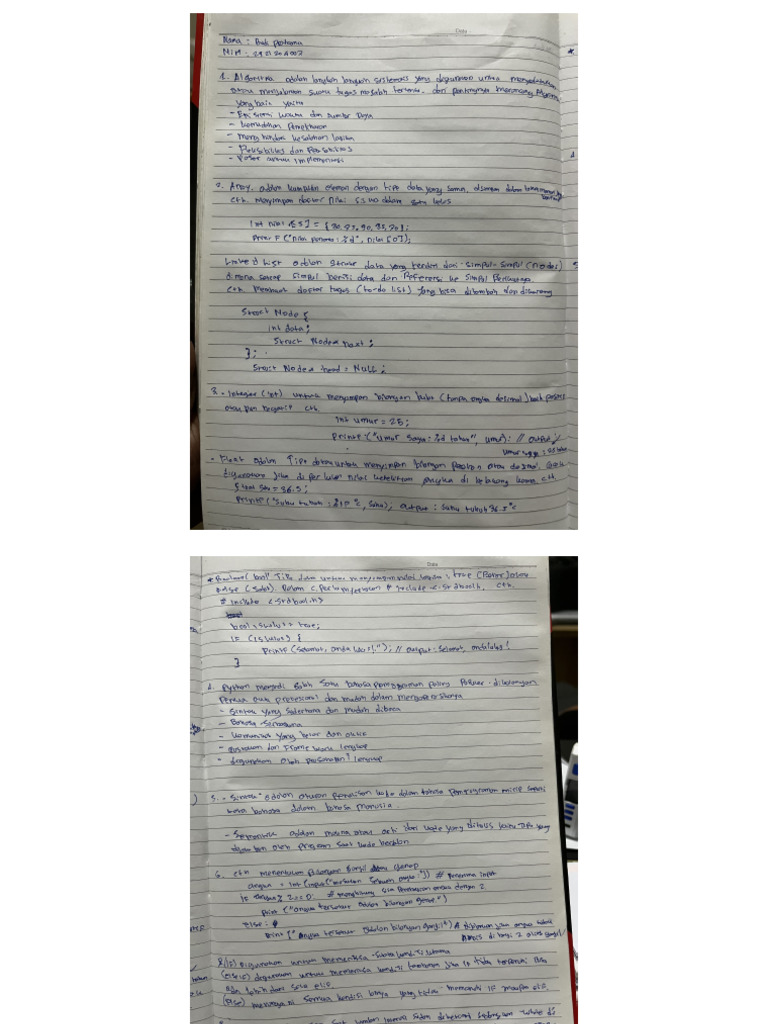 Date
Nama : Andi Pratama
NIM :
1. Algoritma adalah langkah langkah sistematis yang digunakan untuk menyelesaikan
atau menjalankan suatu tugas masalah tertentu. dan pentingnya merancang Algoritma
yang baik yaitu
- Efisiensi waktu dan sumber Daya
- kemudahan Pemeliharaan
- menghindari kesalahan logika
- Fleksibilitas dan
- Dasar untuk implementasi
2. Array adalah kumpulan elemen dengan tipe data yang sama, disimpan dalam
cth. Menyimpan daftar Nilai siswa dalam satu kelas
int nilai [5] = {
printf ("Nilai pertama : %d", nilai [0]);
Linked List adalah struktur data yang terdiri dari simpul-simpul (nodes)
dimana setiap simpul berisi data dan Referensi ke simpul Berikutnya
cth. Membuat daftar tugas (to-do list) yang bisa ditambah dan dikurang
Struct Node {
int data;
Struct Node* next ;
};
Struct Node* head = NULL ;
3. - Integer (int) untuk menyimpan bilangan bulat (tanpa angka desimal) baik positif
ataupun negatif cth.
int umur = 25;
printf ("Umur saya : %d tahun", umur); // output /
- Float adalah Tipe data untuk menyimpan bilangan pecahan atau desimal.
digunakan jika di perlukan nilai ketelitian angka di belakang koma cth.
float suhu = 36.5;
printf ("Suhu tubuh : °C, suhu); output : suhu tubuh 36.5°C
Date
* Boolean (bool) Tipe data untuk menyimpan nilai logika : true (Benar) atau
false (salah). Dalam C, perlu # include <stdbool.h. cth.
# include <stdbool.h>
bool isLulus = true;
if (isLulus) {
printf (Selamat, anda lulus!."); // output : Selamat, anda lulus !
}
4. Python menjadi salah satu bahasa pemrograman paling Populer dikalangan
Pemula dan profesional dan mudah dalam
- Sintak yang sederhana dan mudah dibaca
- Bahasa serbaguna
- komunitas yang besar dan aktif
- dan Frame work lengkap
- digunakan oleh perusahaan
5. - Sintak adalah aturan penulisan kode dalam bahasa Pemrograman mirip seperti
tata bahasa dalam bahasa manusia.
- Semantik adalah makna atau arti dari kode yang ditulis yaitu apa yang
dijalankan oleh program saat kode berjalan
6. cth menentukan Bilangan Ganjil atau genap
angka = int (input("masukan sebuah angka:")) # menerima input
if angka % 2 == 0: # menghitung sisa Pembagian angka dengan 2
print ("angka tersebut adalah bilangan genap.")
else :
print ("angka tersebut adalah bilangan ganjil") # dijalankan jika angka tidak
habis di bagi 2 alias ganjil
(if) Digunakan untuk memeriksa suatu kondisi
(elseif) digunakan untuk memeriksa kondisi tambahan jika if tidak terpenuhi Bisa
ada lebih dari satu elif.
(Else) menangani semua kondisi lainya yang tidak memenuhi if maupun elif.